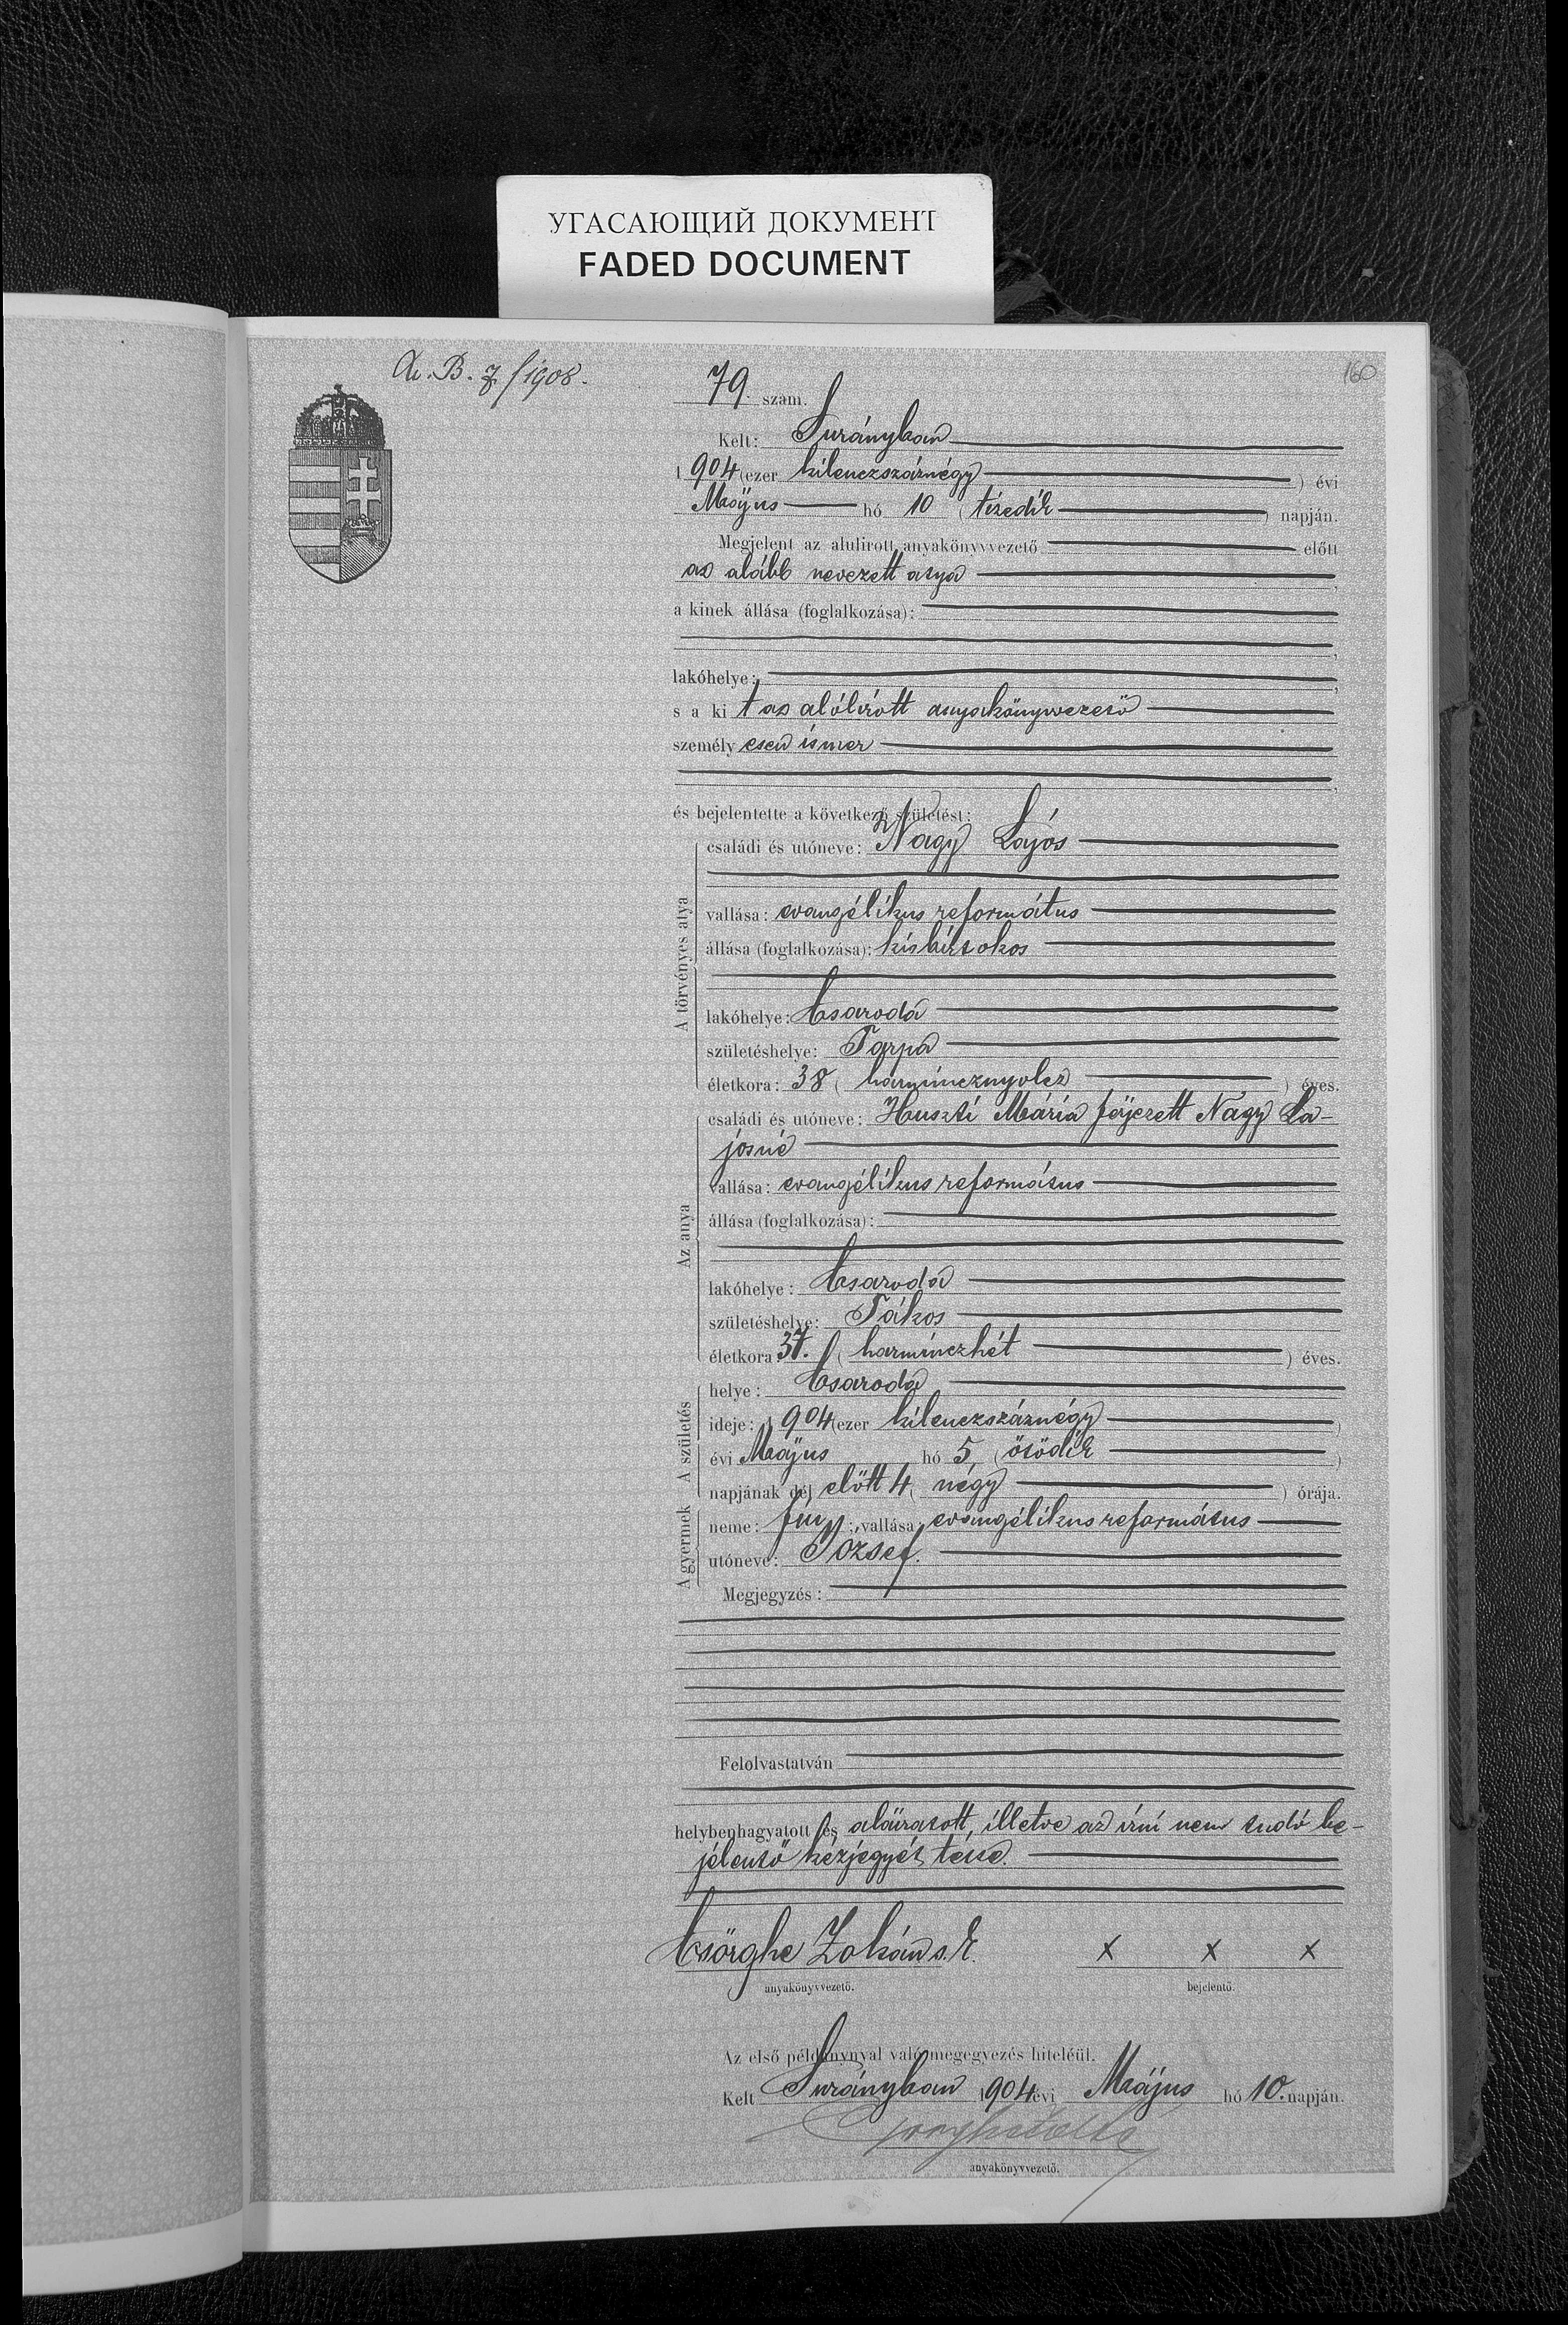 УГАСАЮЩИЙ ДОКУМЕНТ
FADED DOCUMENT
160
79. szám.
Kelt: Surányban
1904 (ezer kilenczszáznégy) évi
Május hó 10 (tizedik) napján.
Megjelent az alulirott anyakönyvvezető előtt
az alább nevezett atya,
a kinek állása (foglalkozása):
lakóhelye:
s a kit az alólirott anyakönyvvezető
személyesen ismer
és bejelentette a következő születést:
A törvényes atya
családi és utóneve: Nagy Lajos
vallása: evangélikus református
állása (foglalkozása): kisbirtokos
lakóhelye: Csaroda
születéshelye: Tarpa
életkora: 38 (harmincznyolcz) éves.
Az anya
családi és utóneve: Huszti Mária férjezett Nagy La-
josné
vallása: evangélikus református
állása (foglalkozása):
lakóhelye: Csaroda
születéshelye: Tákos
életkora: 37. (harminczhét) éves.
A születés
helye: Csaroda
ideje: 1904 (ezer kilenczszáznégy)
évi Május hó 5 (ötödik)
napjának dél előtt 4 (négy) órája.
A gyermek
neme: fiu; vallása: evangélikus református
utóneve: József.
Megjegyzés:
Felolvastatván
helybenhagyatott és aláiratott, illetve az irni nem tudó be-
jelentő kézjegyét tette.
Csörghe Zoltán s. k. x x x
anyakönyvvezető. bejelentő.
Az első példánynyal való megegyezés hiteléül.
Kelt Surányban 1904 évi Május hó 10. napján.
anyakönyvvezető.